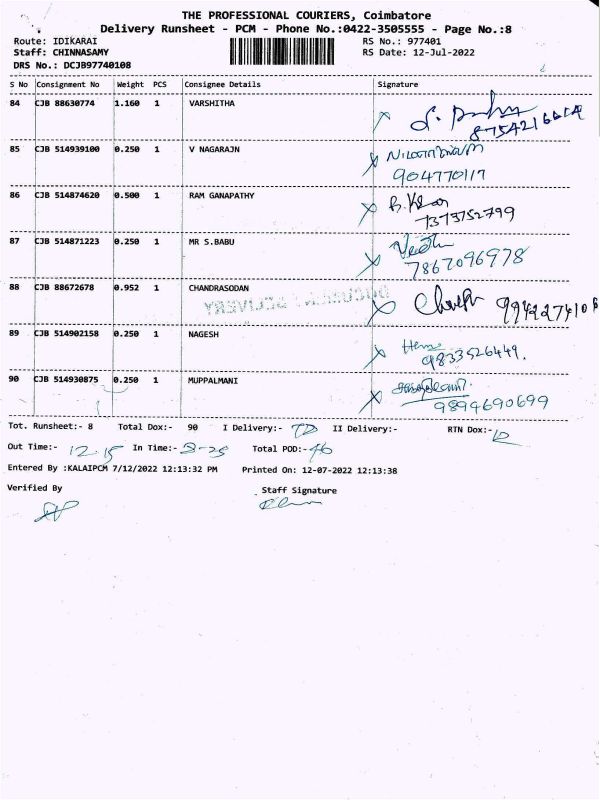 THE PROFESSIONAL COURIERS, Coimbatore
Delivery Runsheet - PCM - Phone No.:0422-3505555 - Page No.:8
Route: IDIKARAI RS No.: 977401
Staff: CHINNASAMY RS Date: 12-Jul-2022
DRS No.: DCJB97740108
S No Consignment No Weight PCS Consignee Details Signature
84 CJB 88630774 1.160 1 VARSHITHA
85 CJB 514939100 0.250 1 V NAGARAJN
904770117
86 CJB 514874620 0.500 1 RAM GANAPATHY
7373752799
87 CJB 514871223 0.250 1 MR S.BABU
7867096978
88 CJB 88672678 0.952 1 CHANDRASODAN
9942274106
DOCUMENT DELIVERY
89 CJB 514902158 0.250 1 NAGESH
9833526449.
90 CJB 514930875 0.250 1 MUPPALMANI
9894690699
Tot. Runsheet:- 8 Total Dox:- 90 I Delivery:- II Delivery:- RTN Dox:-
Out Time:- 12.15 In Time:- 8-25 Total POD:- 46
Entered By :KALAIPCM 7/12/2022 12:13:32 PM Printed On: 12-07-2022 12:13:38
Verified By Staff Signature